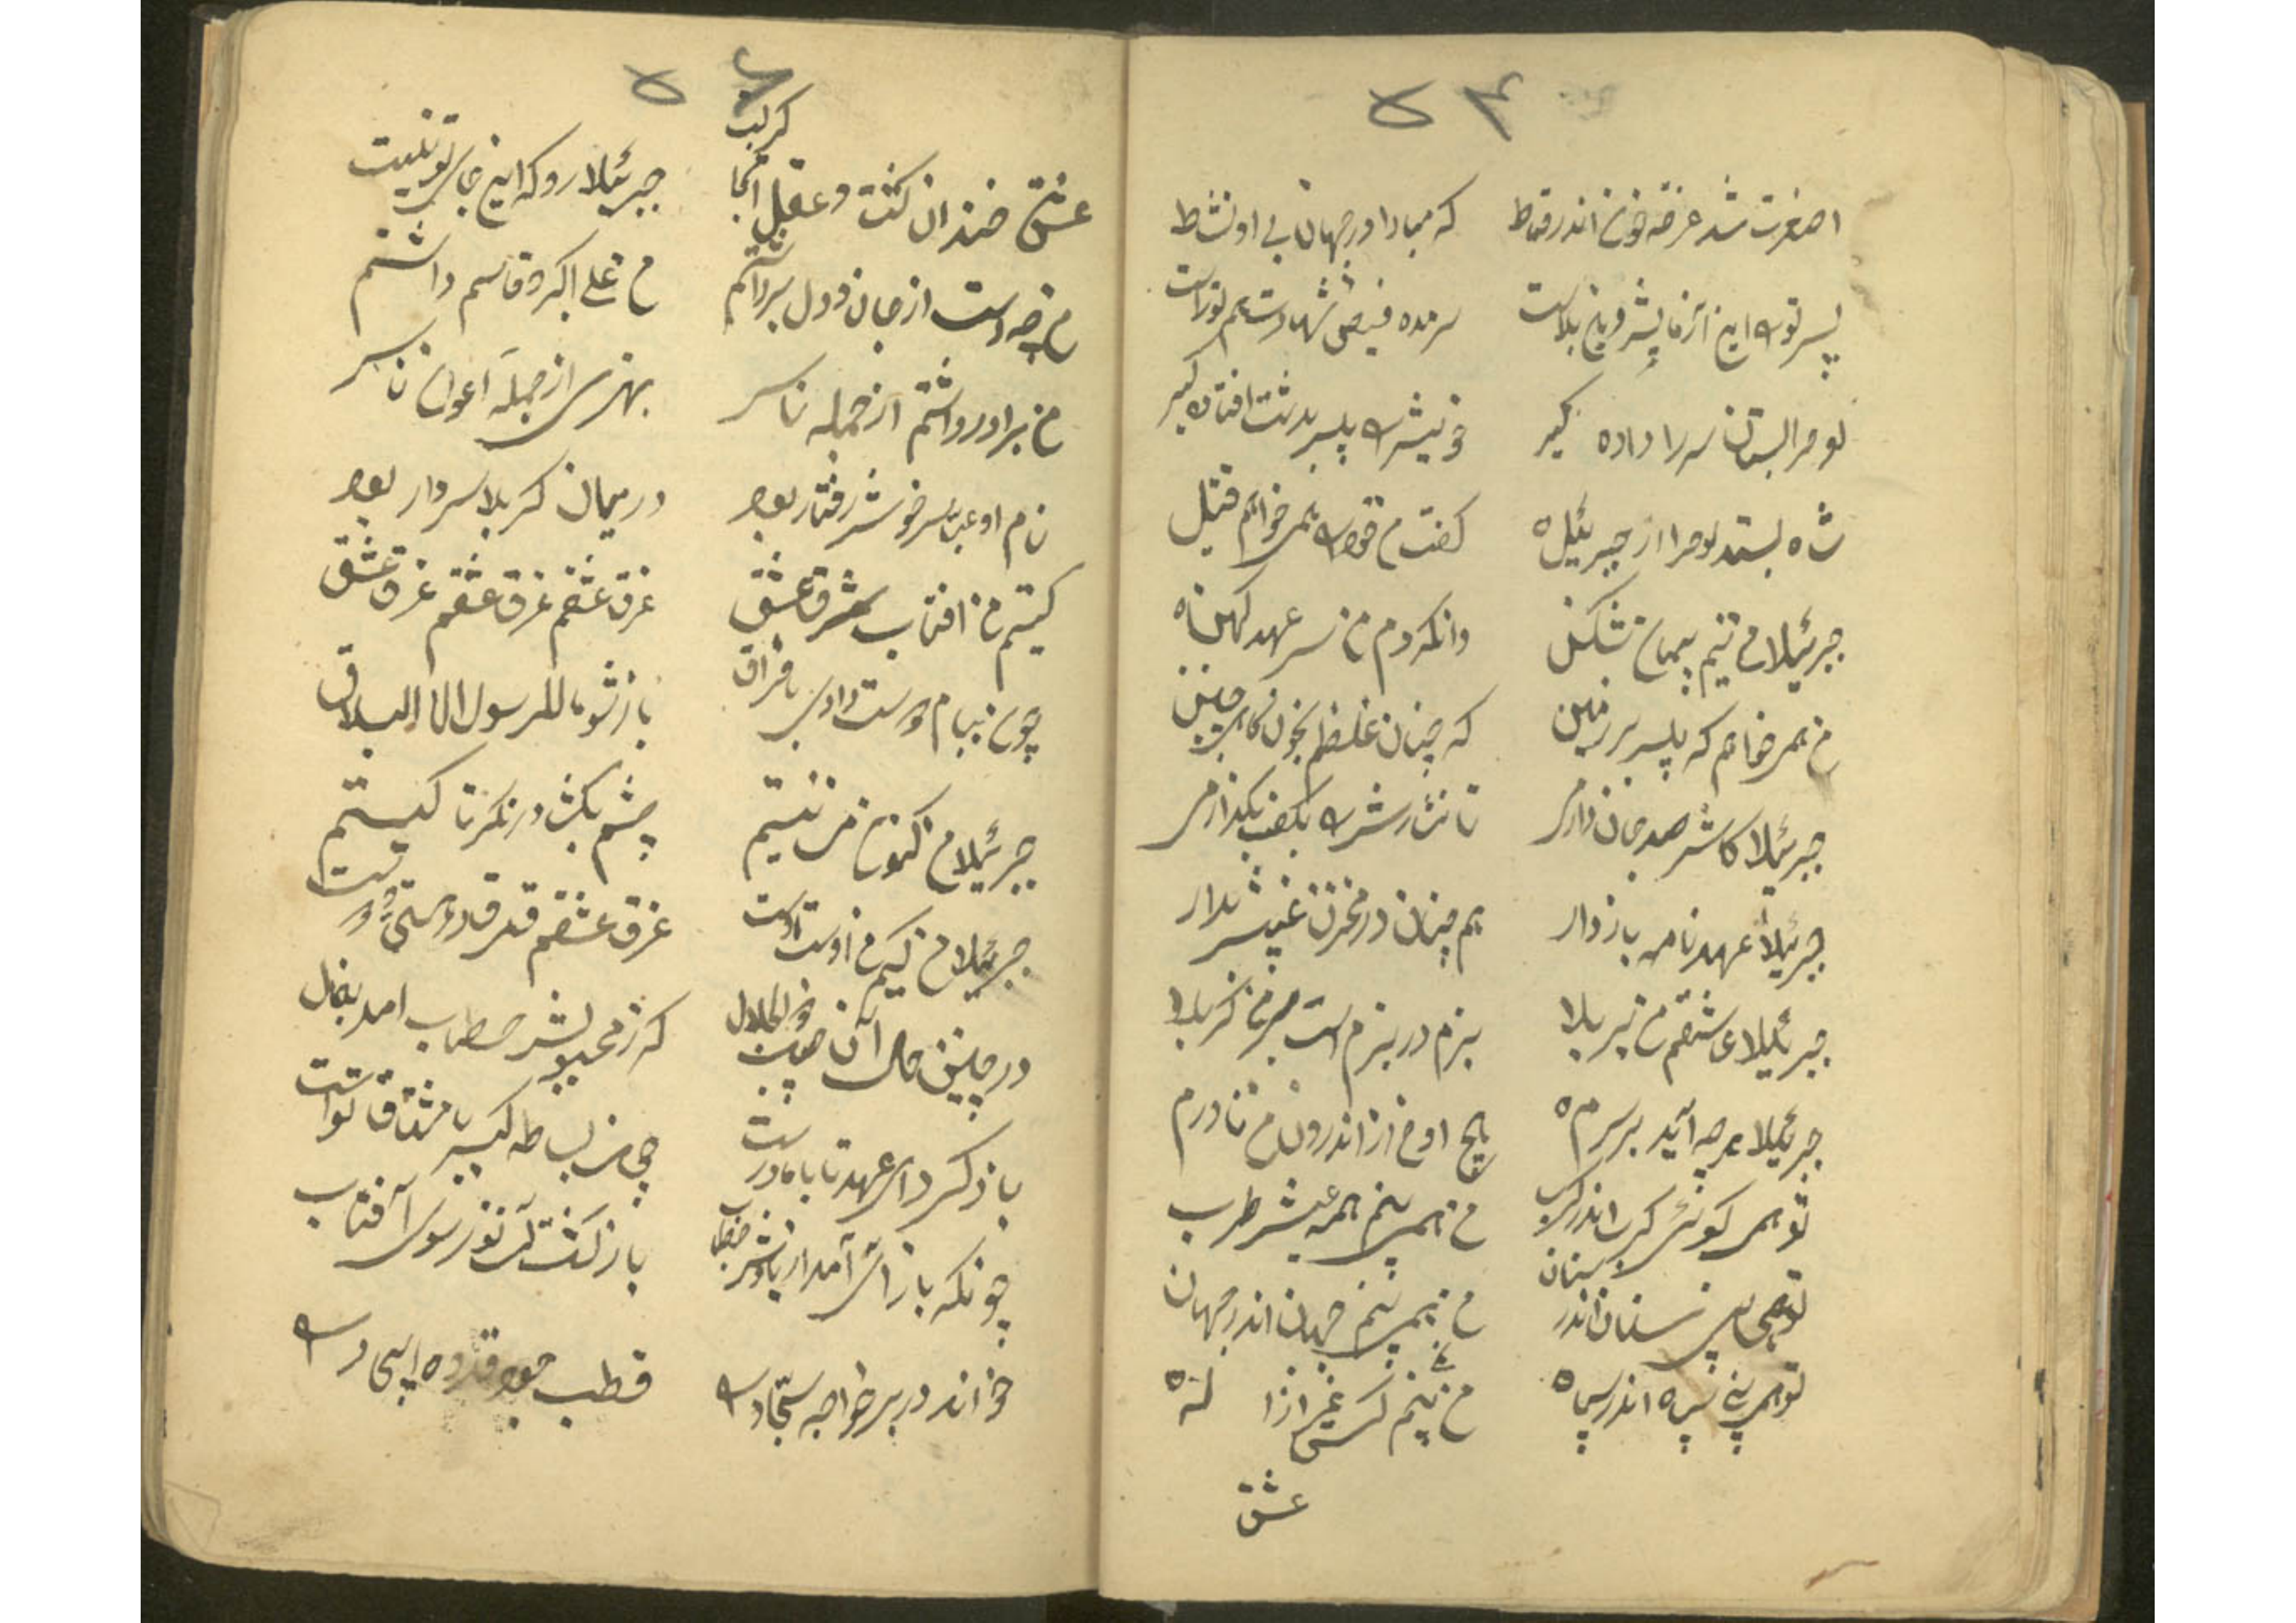 ۵۴
اصغرت شد غرقه خون اندر قماط که مبادا در جهان بی او نشاط
پسر تو این آزمایش وین بلاست سرمده فیض شهادت هم تو راست
لوح را بستان سر را داده گیر خویش را پیر بدشت افتاده گیر
شاه بستد لوح را از جبرئیل گفت من خود را همی خواهم قتیل
جبرئیلا من نیم پیمان شکن وانکردم من سر عهد کهن
من همی خواهم که پیر بر زمین که چنان غلطم بخون گاهی چنین
جبرئیلا کاش صد جان دارمی تا نثارش را بکف بگذارمی
جبرئیلا عهدنامه باز دار هم چنان در مخزن غیبش بدار
جبرئیلا عاشقم من بر بلا بزم در بزم است بر من کربلا
جبرئیلا هرچه آید بر سرم هیچ او من از اندرون من تا درم
تو همی گوئی کرب اندر کرب من همی بینم همه عیش و طرب
تو همی بینی سنان اندر سنان من همی بینم جهان اندر جهان
تو همی بینی سپاه اندر سپاه من نبینم کس بغیر از اله
عشق
۵۵
عشق خندان گشت و عقل آنجا گریست جبرئیلا رو که این جای تو نیست
من چه دست از جان و دل برداشتم من علی اکبر و قاسم داشتم
من برادر داشتم از جمله ناس بهتری از جمله اعوان ناس
نام او عباس خوش رفتار بود در میان کربلا سردار بود
کیستم من آفتاب شرق عشق غرق عشقم غرق عشقم غرق عشق
چون پیام دوست دادی با فراق باز شو ما للرسول الا البلاق
جبرئیلا من کنون من نیستم چشم بگشا در نگر تا کیستم
جبرئیلا من کیم من اوست اوست غرق عشقم فرق تا
در چنین حال آن ذو الجلال کز محبوبش خطاب آمد تعال
باز گرد ای عهد تا با ما درست چون بساط کبریا مشتاق تو است
چونکه بازش آمد از یارش خطاب باز گشت آن نور سوی آفتاب
خواند در بر خواجه سجاد را قطب جود قدوه ایجاد را